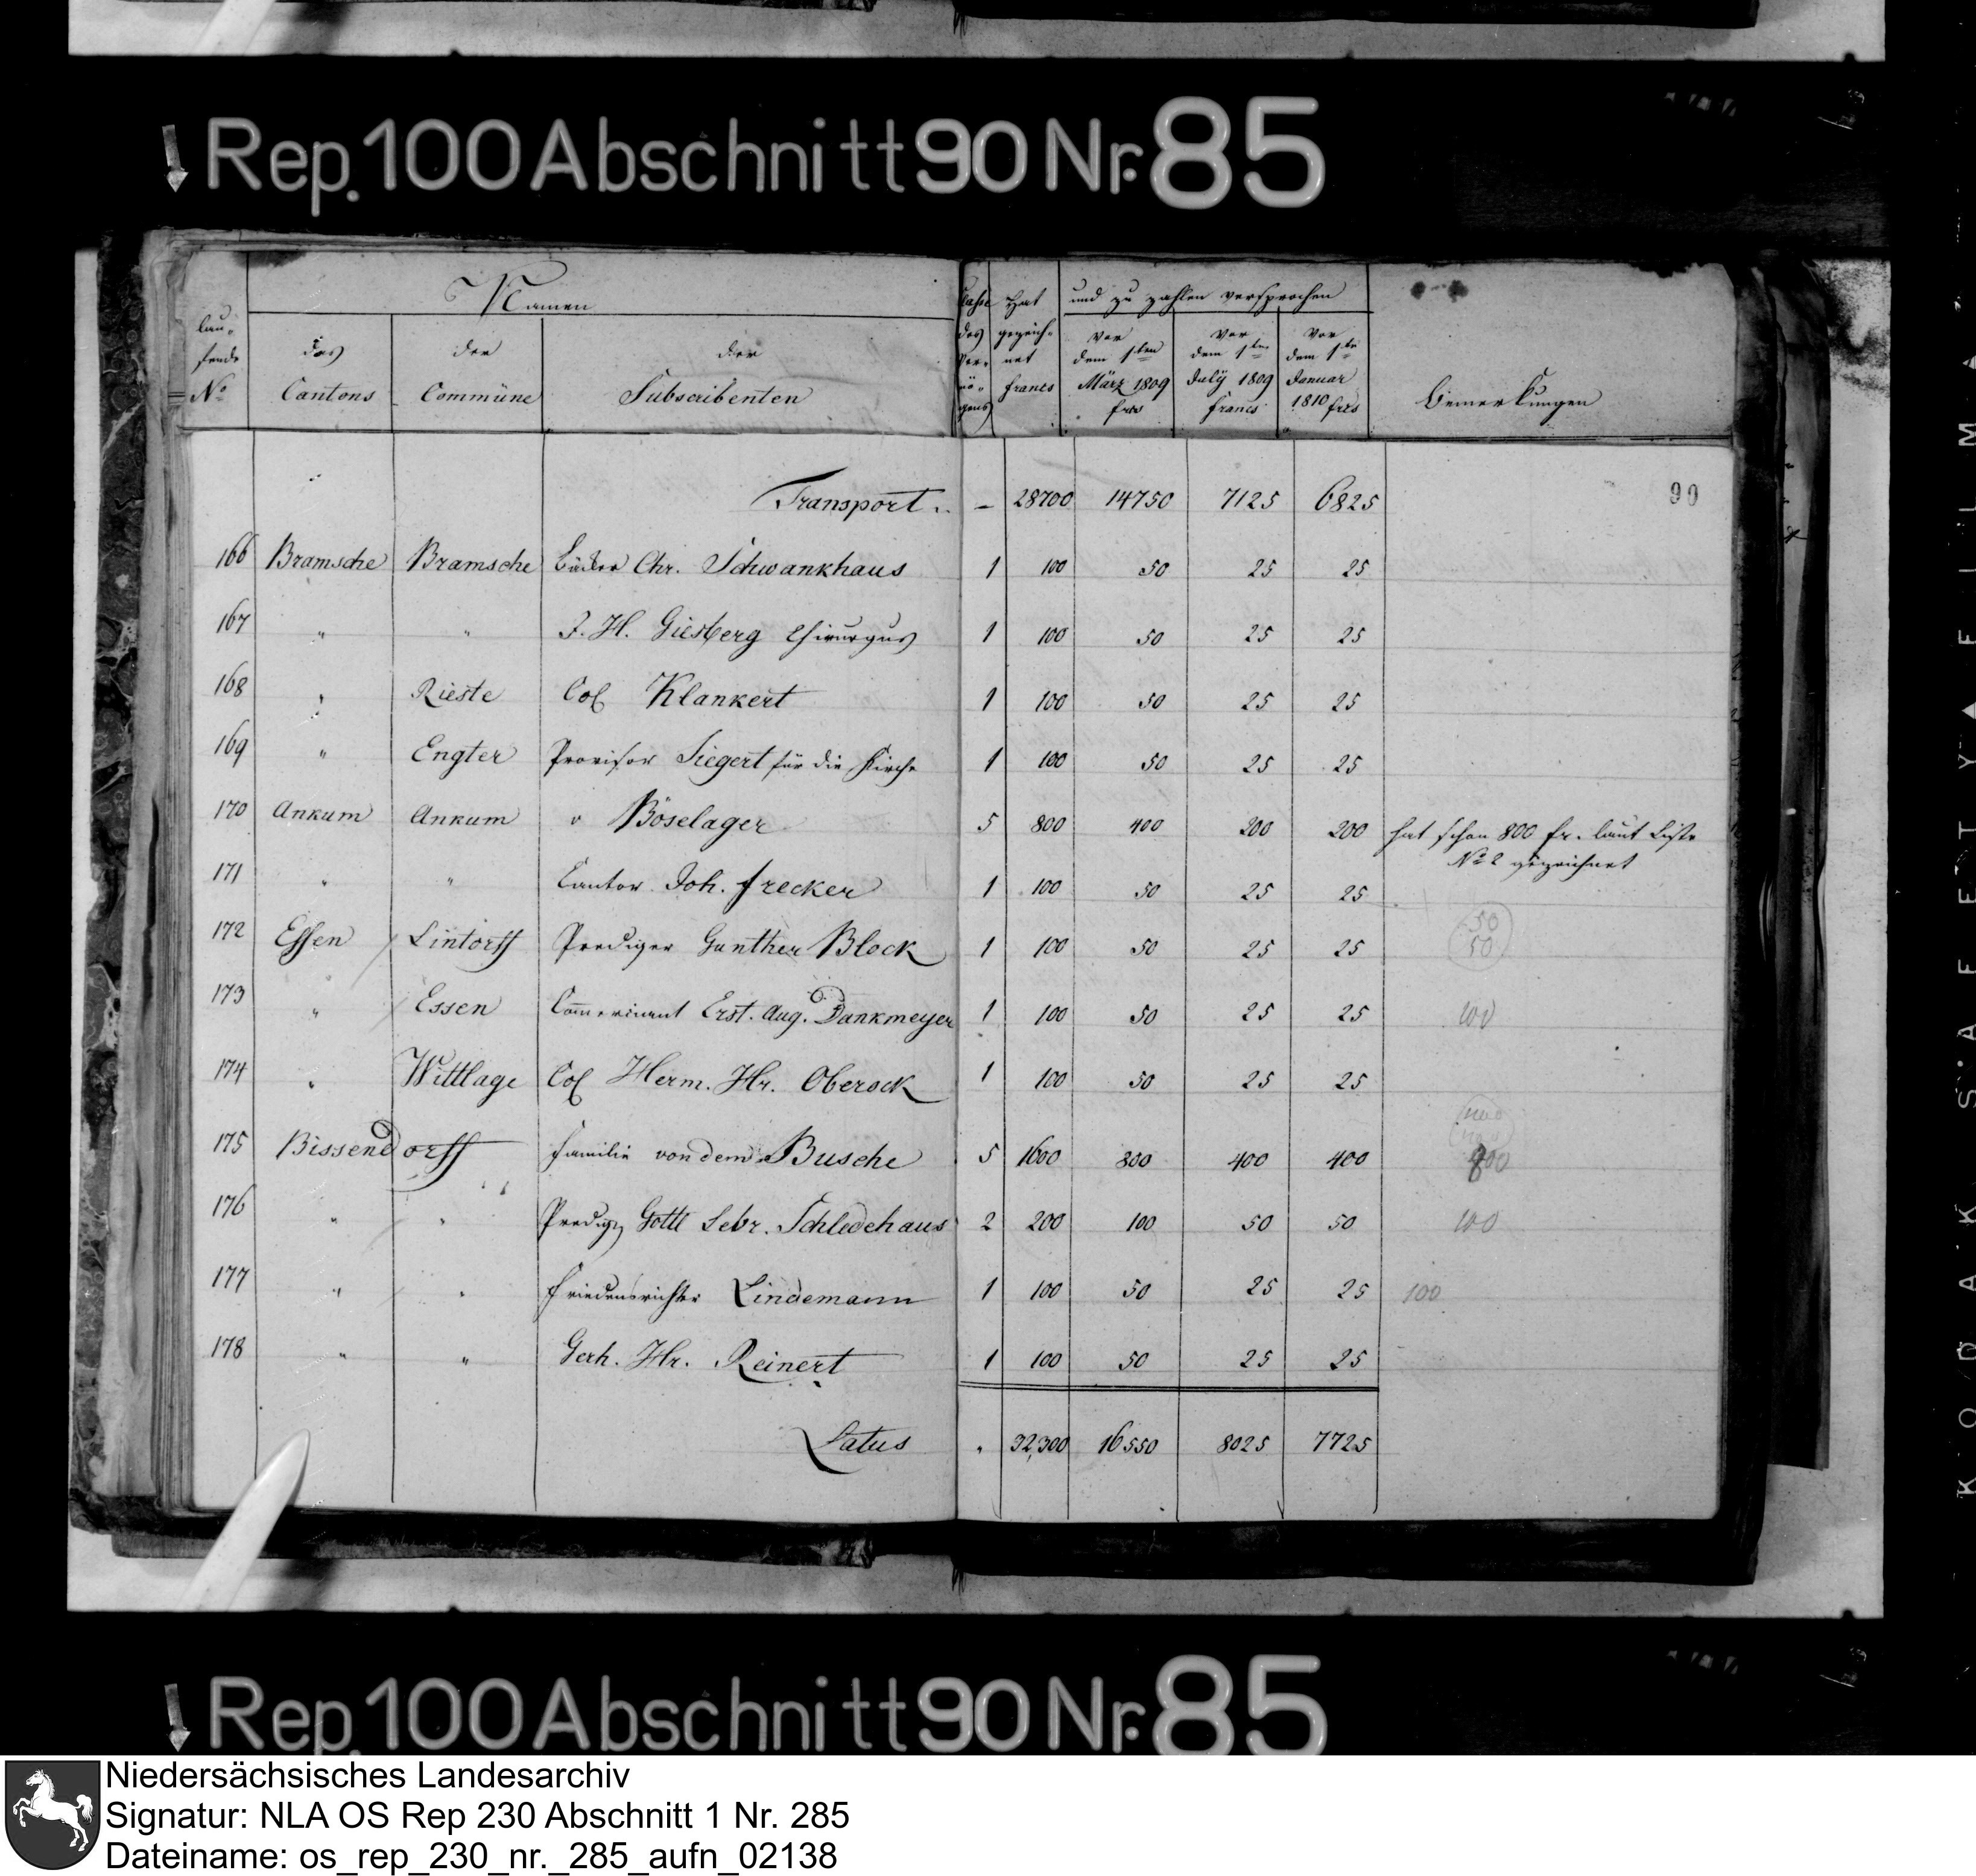 Rep. 100 Abschnitt 90 Nr. 85
laufende No
Namen
des Cantons
der Commüne
der Subscribenten
Classe des Vermögens
Hat gezeichnet francs
und zu zahlen versprochen
vor dem 1ten März 1809 frcs
vor dem 1ten July 1809 francs
vor dem 1te Januar 1810 frcs
Bemerkungen
90
Transport.. — 28700 14750 7125 6825
166 Bramsche Bramsche Bäcker Chr. Schwankhaus 1 100 50 25 25
167 " " J. H. Giesberg Chirurgus 1 100 50 25 25
168 " Rieste Col Klankert 1 100 50 25 25
169 " Engter Provisor Siegert für die Kirche 1 100 50 25 25
170 Ankum Ankum v Böselager 5 800 400 200 200 hat schon 800 fr. laut Liste
No 2 gezeichnet
171 " " Cantor Joh. Frecker 1 100 50 25 25
172 Essen Lintorff Prediger Gunther Block 1 100 50 25 25 50
50
173 " Essen Commercinant Erst. Aug. Dankmeyer 1 100 50 25 25 100
174 " Wittlage Col Herm. Hr. Oberock 1 100 50 25 25
175 Bissendorff Familie von dem Busche 5 1600 800 400 400 800
176 " " Prediger Gottl Lebr. Schledehaus 2 200 100 50 50 100
177 " " Friedensrichter Lindemann 1 100 50 25 25 100
178 " " Gerh. Hr. Reinert 1 100 50 25 25
Latus " 32,300 16550 8025 7725
KODAK SAFETY FILM
Rep. 100 Abschnitt 90 Nr. 85
Niedersächsisches Landesarchiv
Signatur: NLA OS Rep 230 Abschnitt 1 Nr. 285
Dateiname: os_rep_230_nr._285_aufn_02138